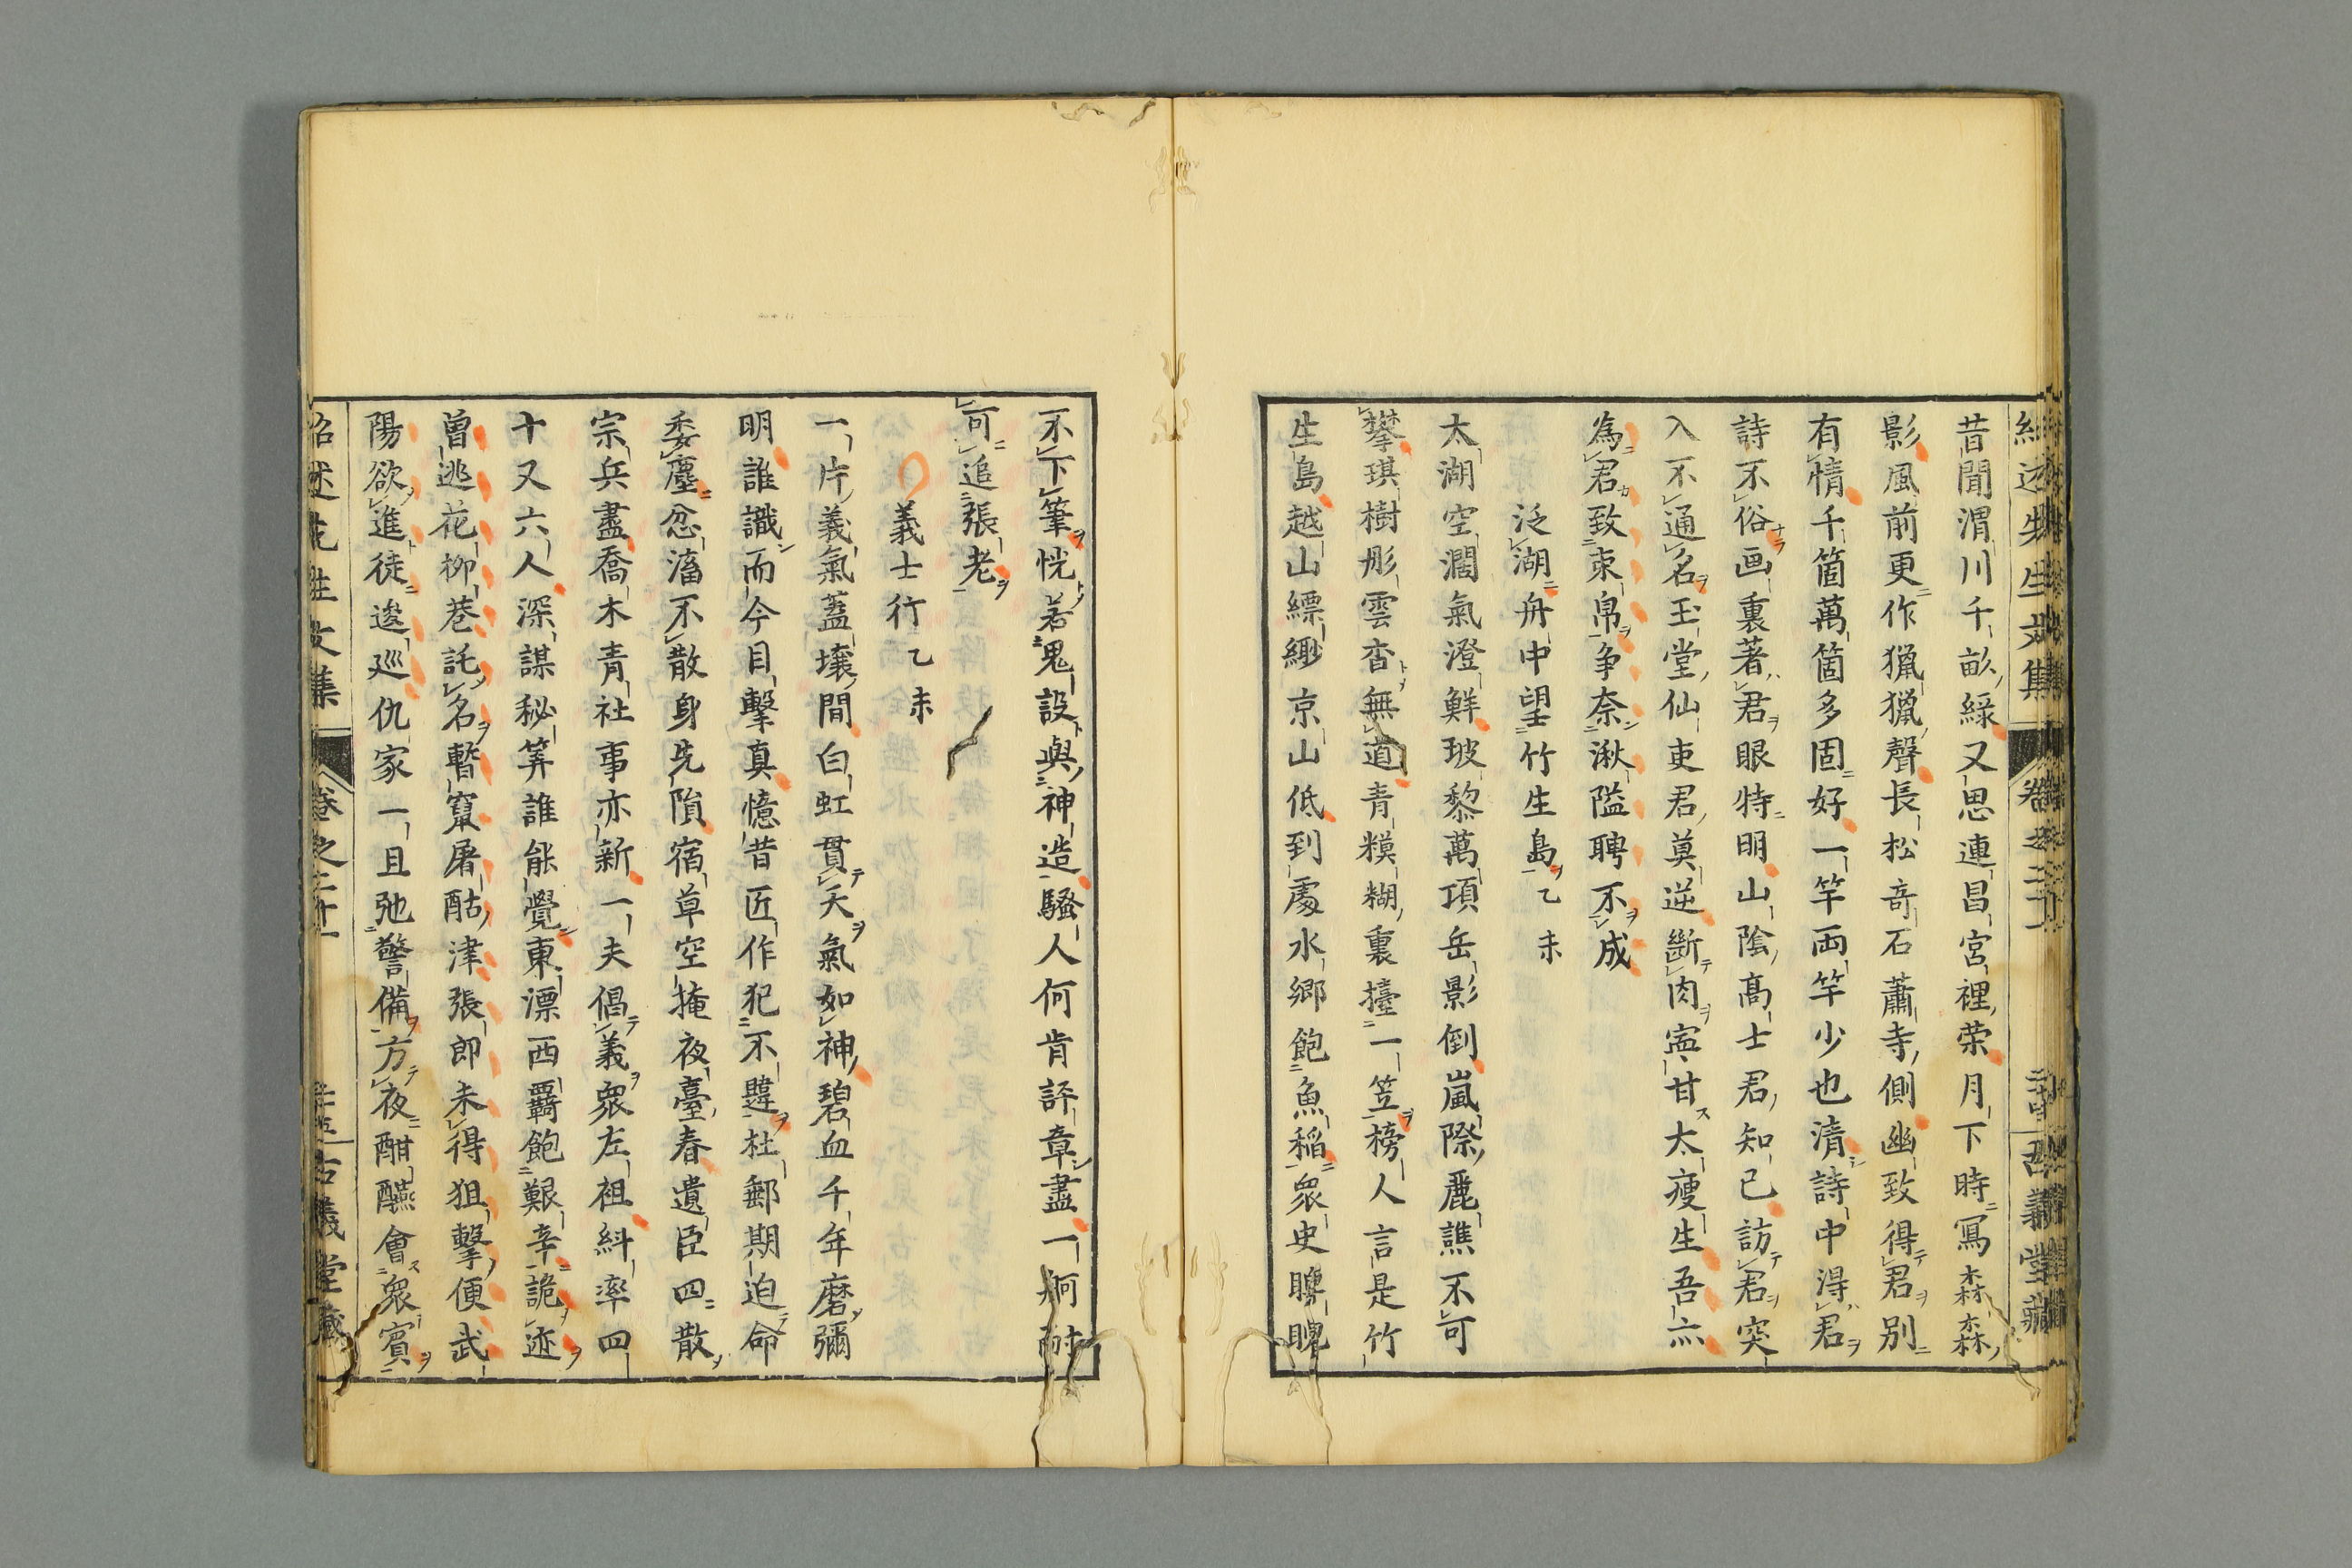 昔聞渭川千畝綠又思連昌宮裡荣月下時寫森森
影風前更作獵獵聲長松竒石蕭寺側幽致得君別
有情千箇萬箇多固好一竿両竿少也清詩中得君
詩不俗画裏著君眼特明山陰髙士君知已訪君突
入不通名玉堂仙吏君莫逆斷肉寍甘太瘦生吾亦
為君致束帛争奈湫隘聘不成
泛湖舟中望竹生島乙未
太湖空濶氣澄鮮玻黎萬項岳影倒嵐際麗譙不可
攀琪樹彤雲杳無道青糢糊裏擡一笠榜人言是竹
生島越山縹緲京山低到處水郷飽魚稲衆史睥睨
不下筆恍若鬼設與神造騷人何肯評章盡一舸
可追張老
義士行乙未
一片義氣蓋壤間白虹貫天氣如神碧血千年磨彌
明誰識而今目擊真憶昔匠作犯不韙杜郵期迫命
委塵忿滀不散身先隕宿草空掩夜臺春遺臣四散
宗兵盡喬木青社事亦新一夫倡義衆左袒糾率四
十又六人深謀秘筭誰能覺東漂西覊飽艱辛詭迹
曽逃花柳巷託名暫竄屠酤津張郎未得狙擊便武
陽欲進徒逡巡仇家一旦弛警備方夜酣醼會衆賓
紹述先生文集
卷之二十一
古義堂藏